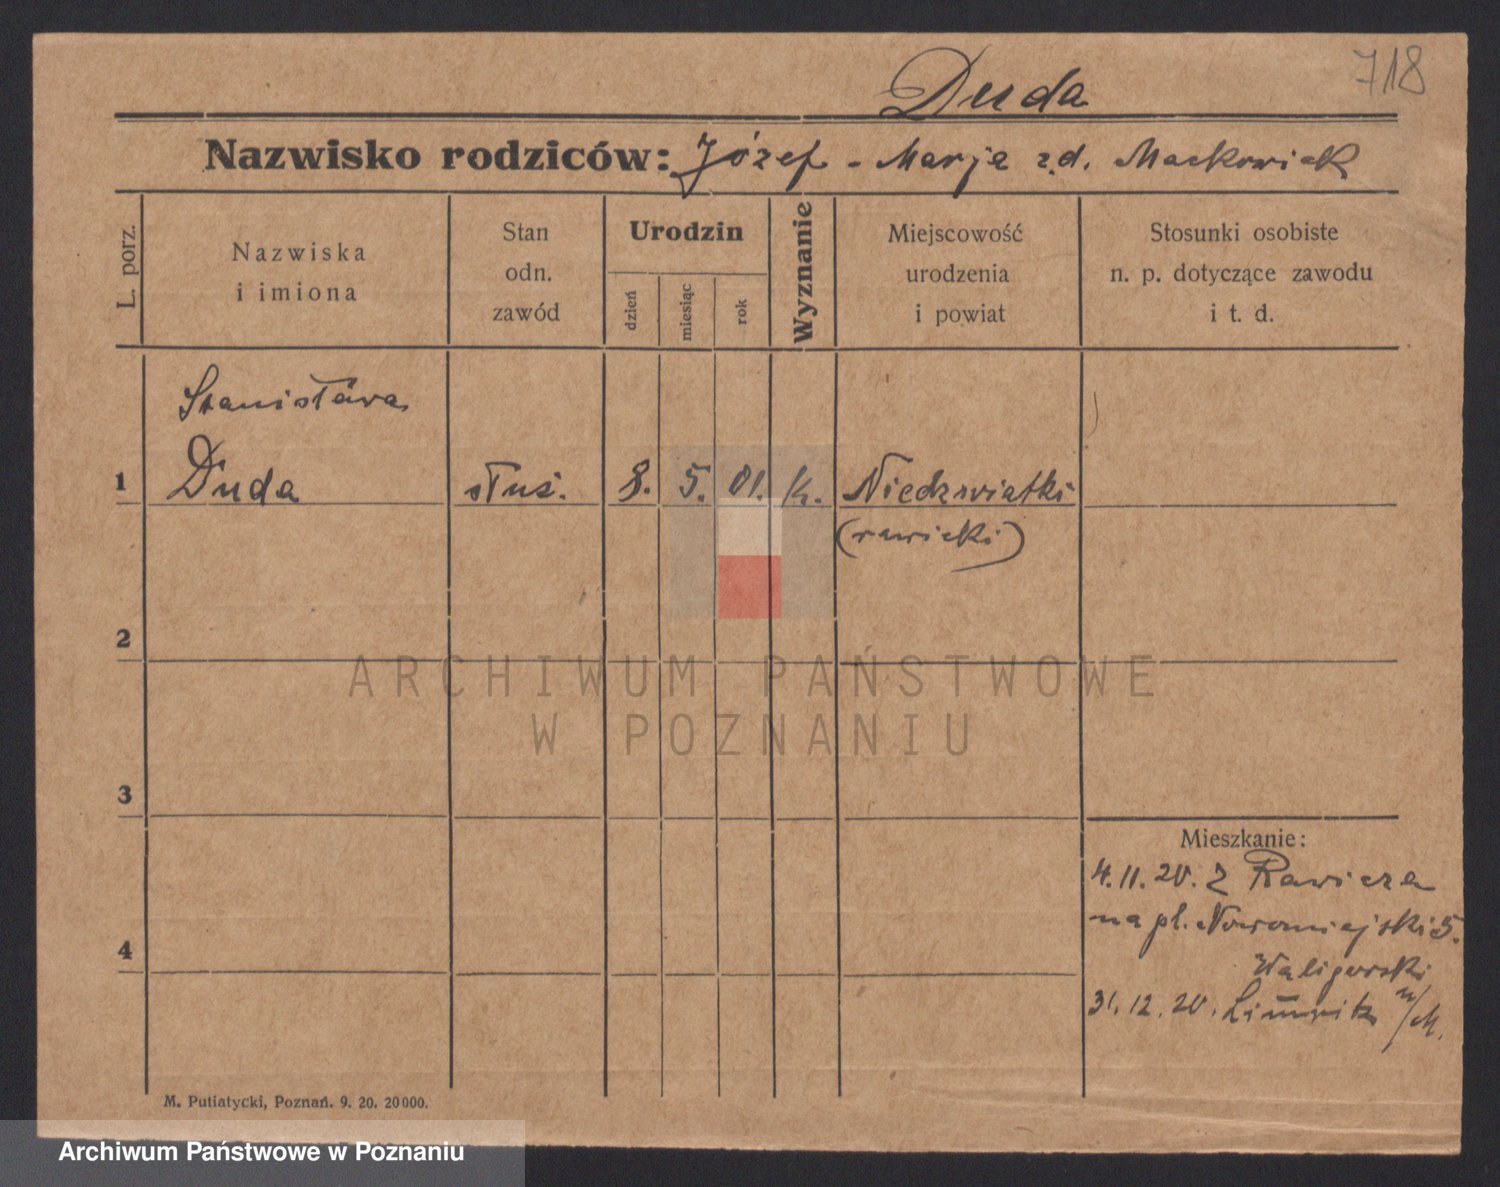 718
Duda
Nazwisko rodziców: Józef - Marja z d. Maćkowiak
L. porz.
Nazwiska
i imiona
Stan
odn.
zawód
Urodzin
dzień
miesiąc
rok
Wyznanie
Miejscowość
urodzenia
i powiat
Stosunki osobiste
n. p. dotyczące zawodu
i t. d.
Stanisława
1 Duda służ. 8. 5. 01. k. Niedzwiatki
(rawicki)
2
ARCHIWUM PAŃSTWOWE
W POZNANIU
3
Mieszkanie:
4.11.20. z Rawicza
na pl. Nowomiejski 5.
4
Waligorski
31.12.20.
M. Putiatycki, Poznań. 9. 20. 20000.
Archiwum Państwowe w Poznaniu